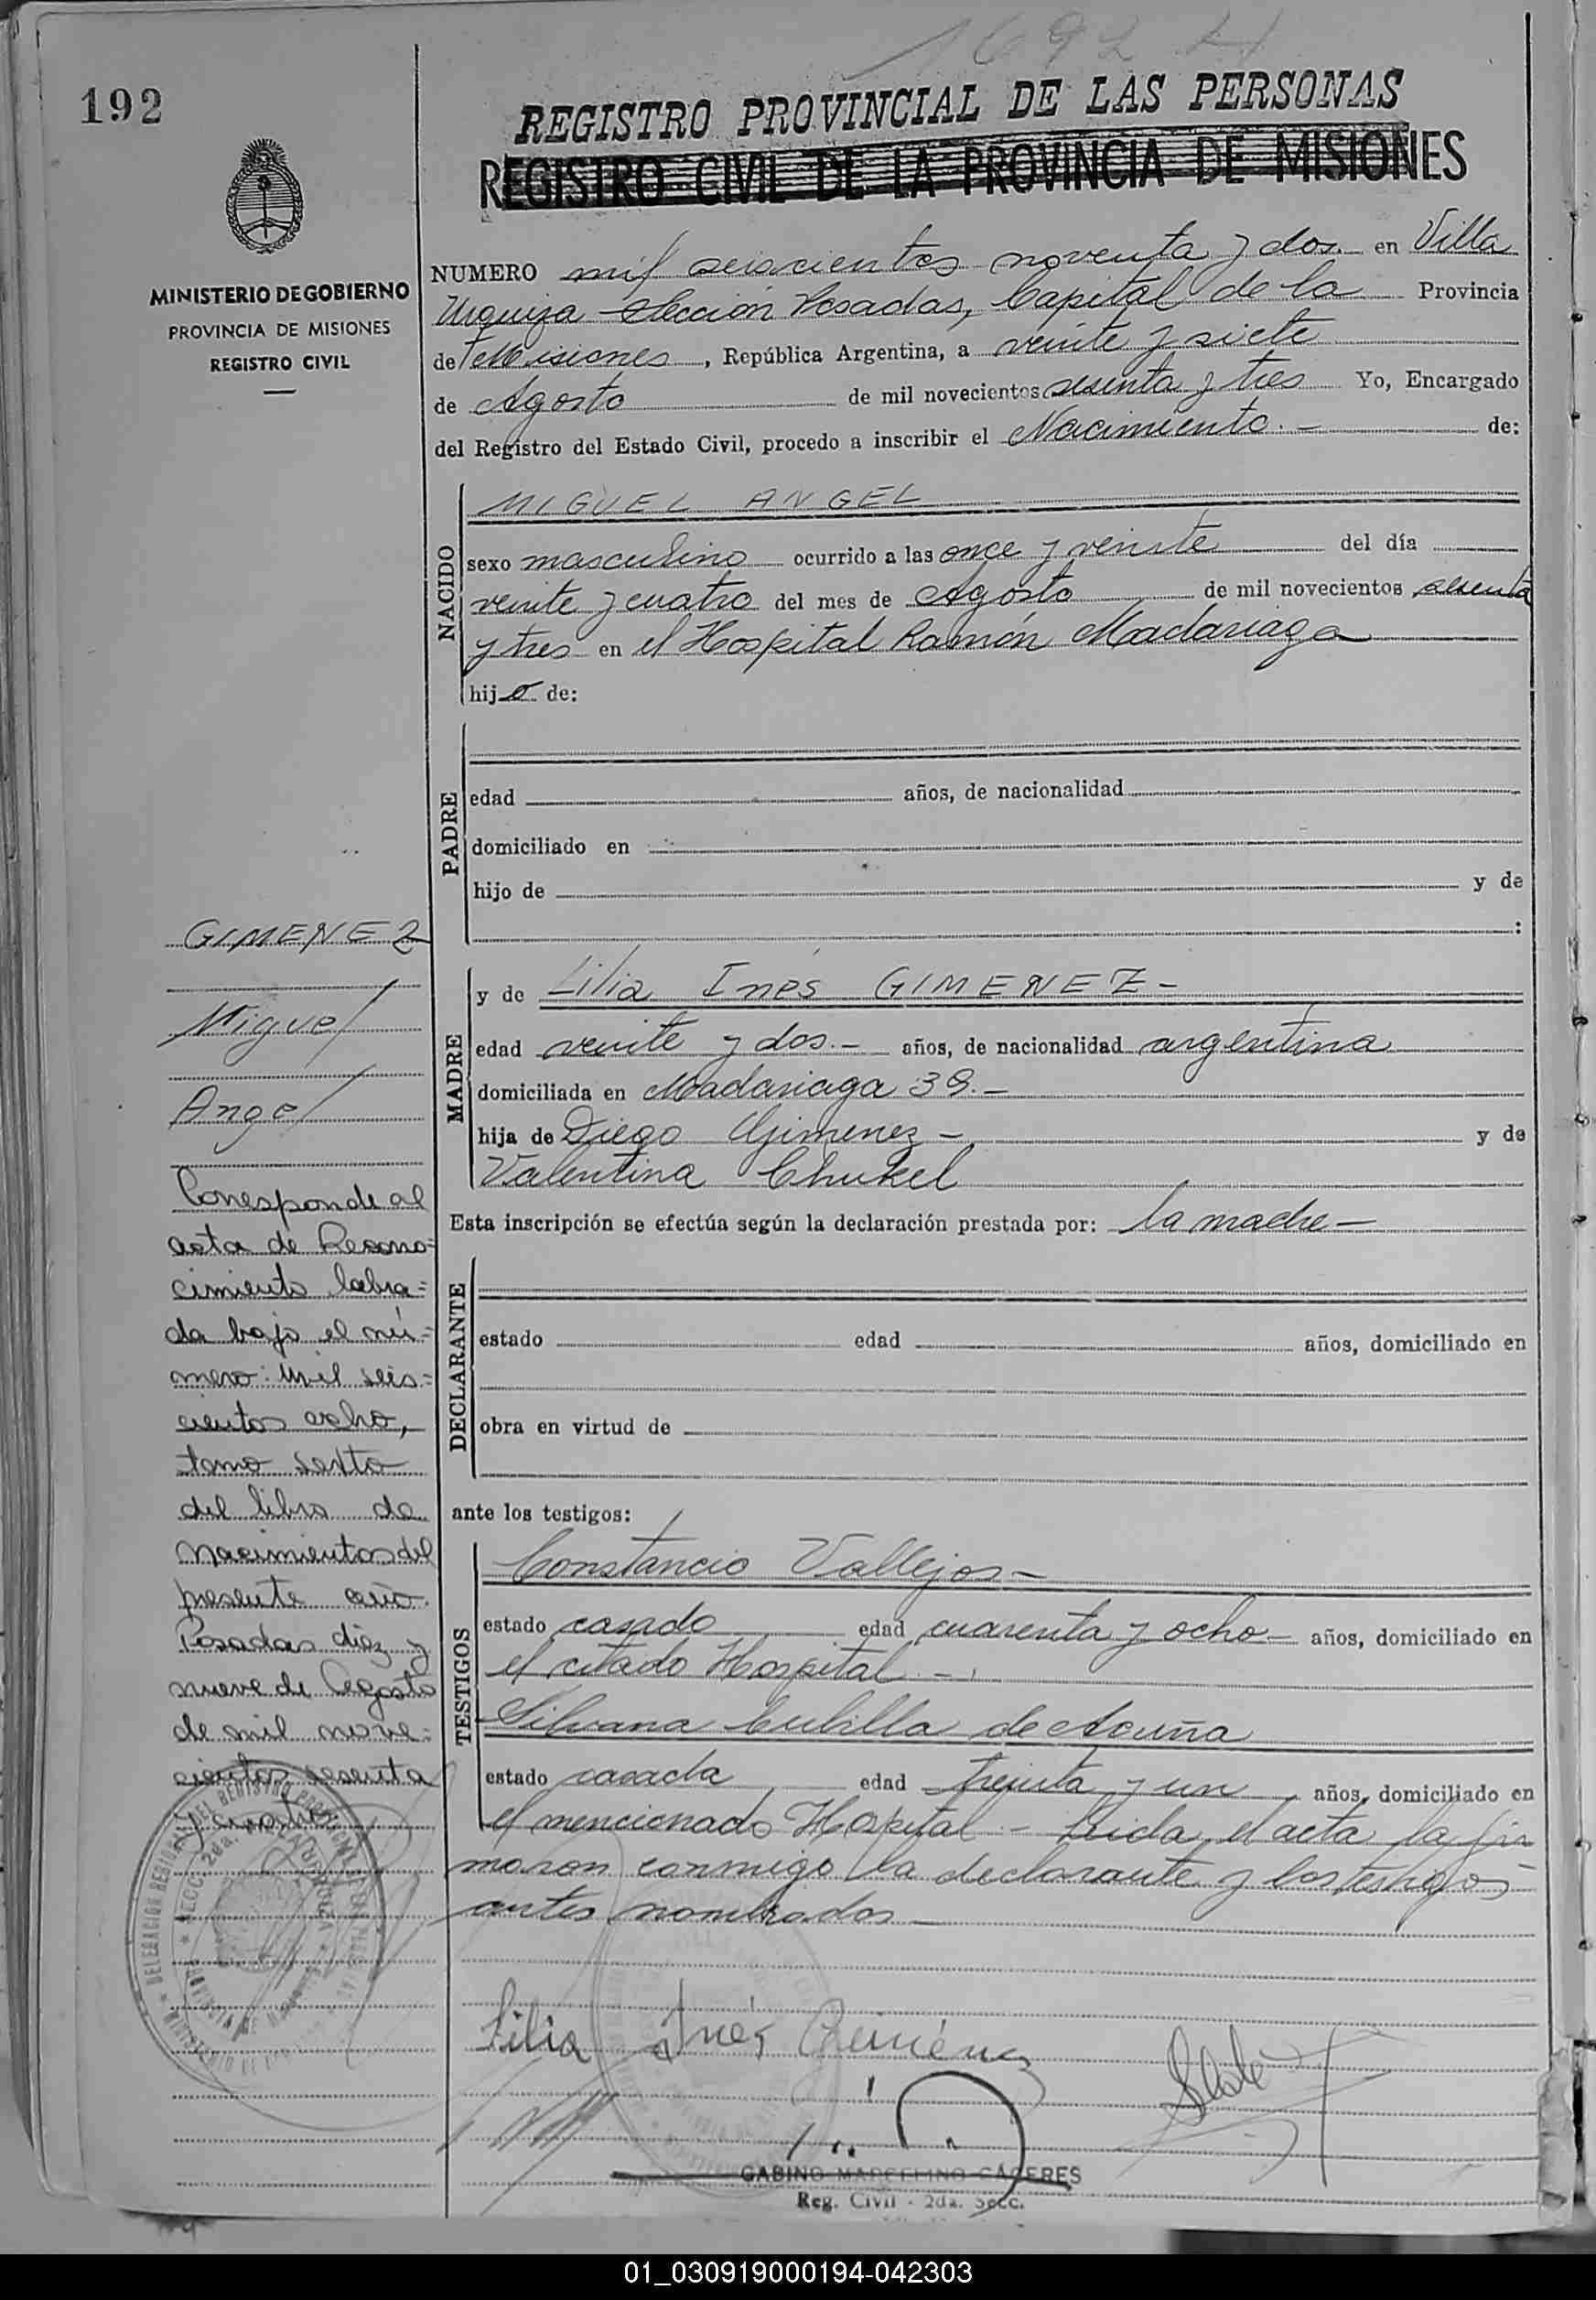 1692 H
192
REGISTRO PROVINCIAL DE LAS PERSONAS
REGISTRO CIVIL DE LA PROVINCIA DE MISIONES
MINISTERIO DE GOBIERNO
PROVINCIA DE MISIONES
REGISTRO CIVIL
NUMERO mil seiscientos noventa y dos. en Villa
Urquiza Sección Posadas, Capital de la Provincia
de Misiones, República Argentina, a veinte y siete
de Agosto de mil novecientos sesenta y tres Yo, Encargado
del Registro del Estado Civil, procedo a inscribir el Nacimiento.- de:
NACIDO
MIGUEL ANGEL
sexo masculino ocurrido a las once y veinte del día
veinte y cuatro del mes de Agosto de mil novecientos sesenta
y tres en el Hospital Ramón Madariaga
hijo de:
PADRE
edad años, de nacionalidad
domiciliado en
hijo de y de
:
MADRE
y de Lilia Inés GIMENEZ-
edad veinte y dos.- años, de nacionalidad argentina
domiciliada en Madariaga 39.-
hija de Diego Gimenez- y de
Valentina Chukel
Esta inscripción se efectúa según la declaración prestada por: la madre-
DECLARANTE
estado edad años, domiciliado en
obra en virtud de
ante los testigos:
TESTIGOS
Constancio Vallejos-
estado casado edad cuarenta y ocho- años, domiciliado en
el citado Hospital.-
Silvana Cubilla de Acuña
estado casada edad treinta y un años, domiciliado en
el mencionado Hospital- Leida el acta la fir
maron conmigo la declarante y los testigos
antes nombrados-
Lilia Inés Giménez
GABINO MARCELINO CÁCERES
Reg. Civil - 2da. Secc.
GIMENEZ
Miguel
Angel
Corresponde al
acta de Recono=
cimiento labra=
da bajo el nú=
mero: mil seis=
cientos ocho,
tomo sexto
del libro de
Nacimientos del
presente año.
Posadas diez y
nueve de Agosto
de mil nove=
cientos sesenta
y cuatro
01_030919000194-042303